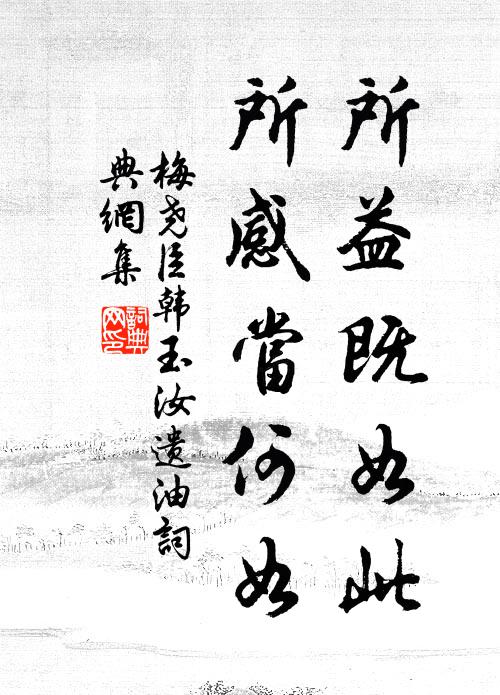 所益既如此
所感當何如
梅尧臣韩玉汝遗油詞
典網集
詞典
网印